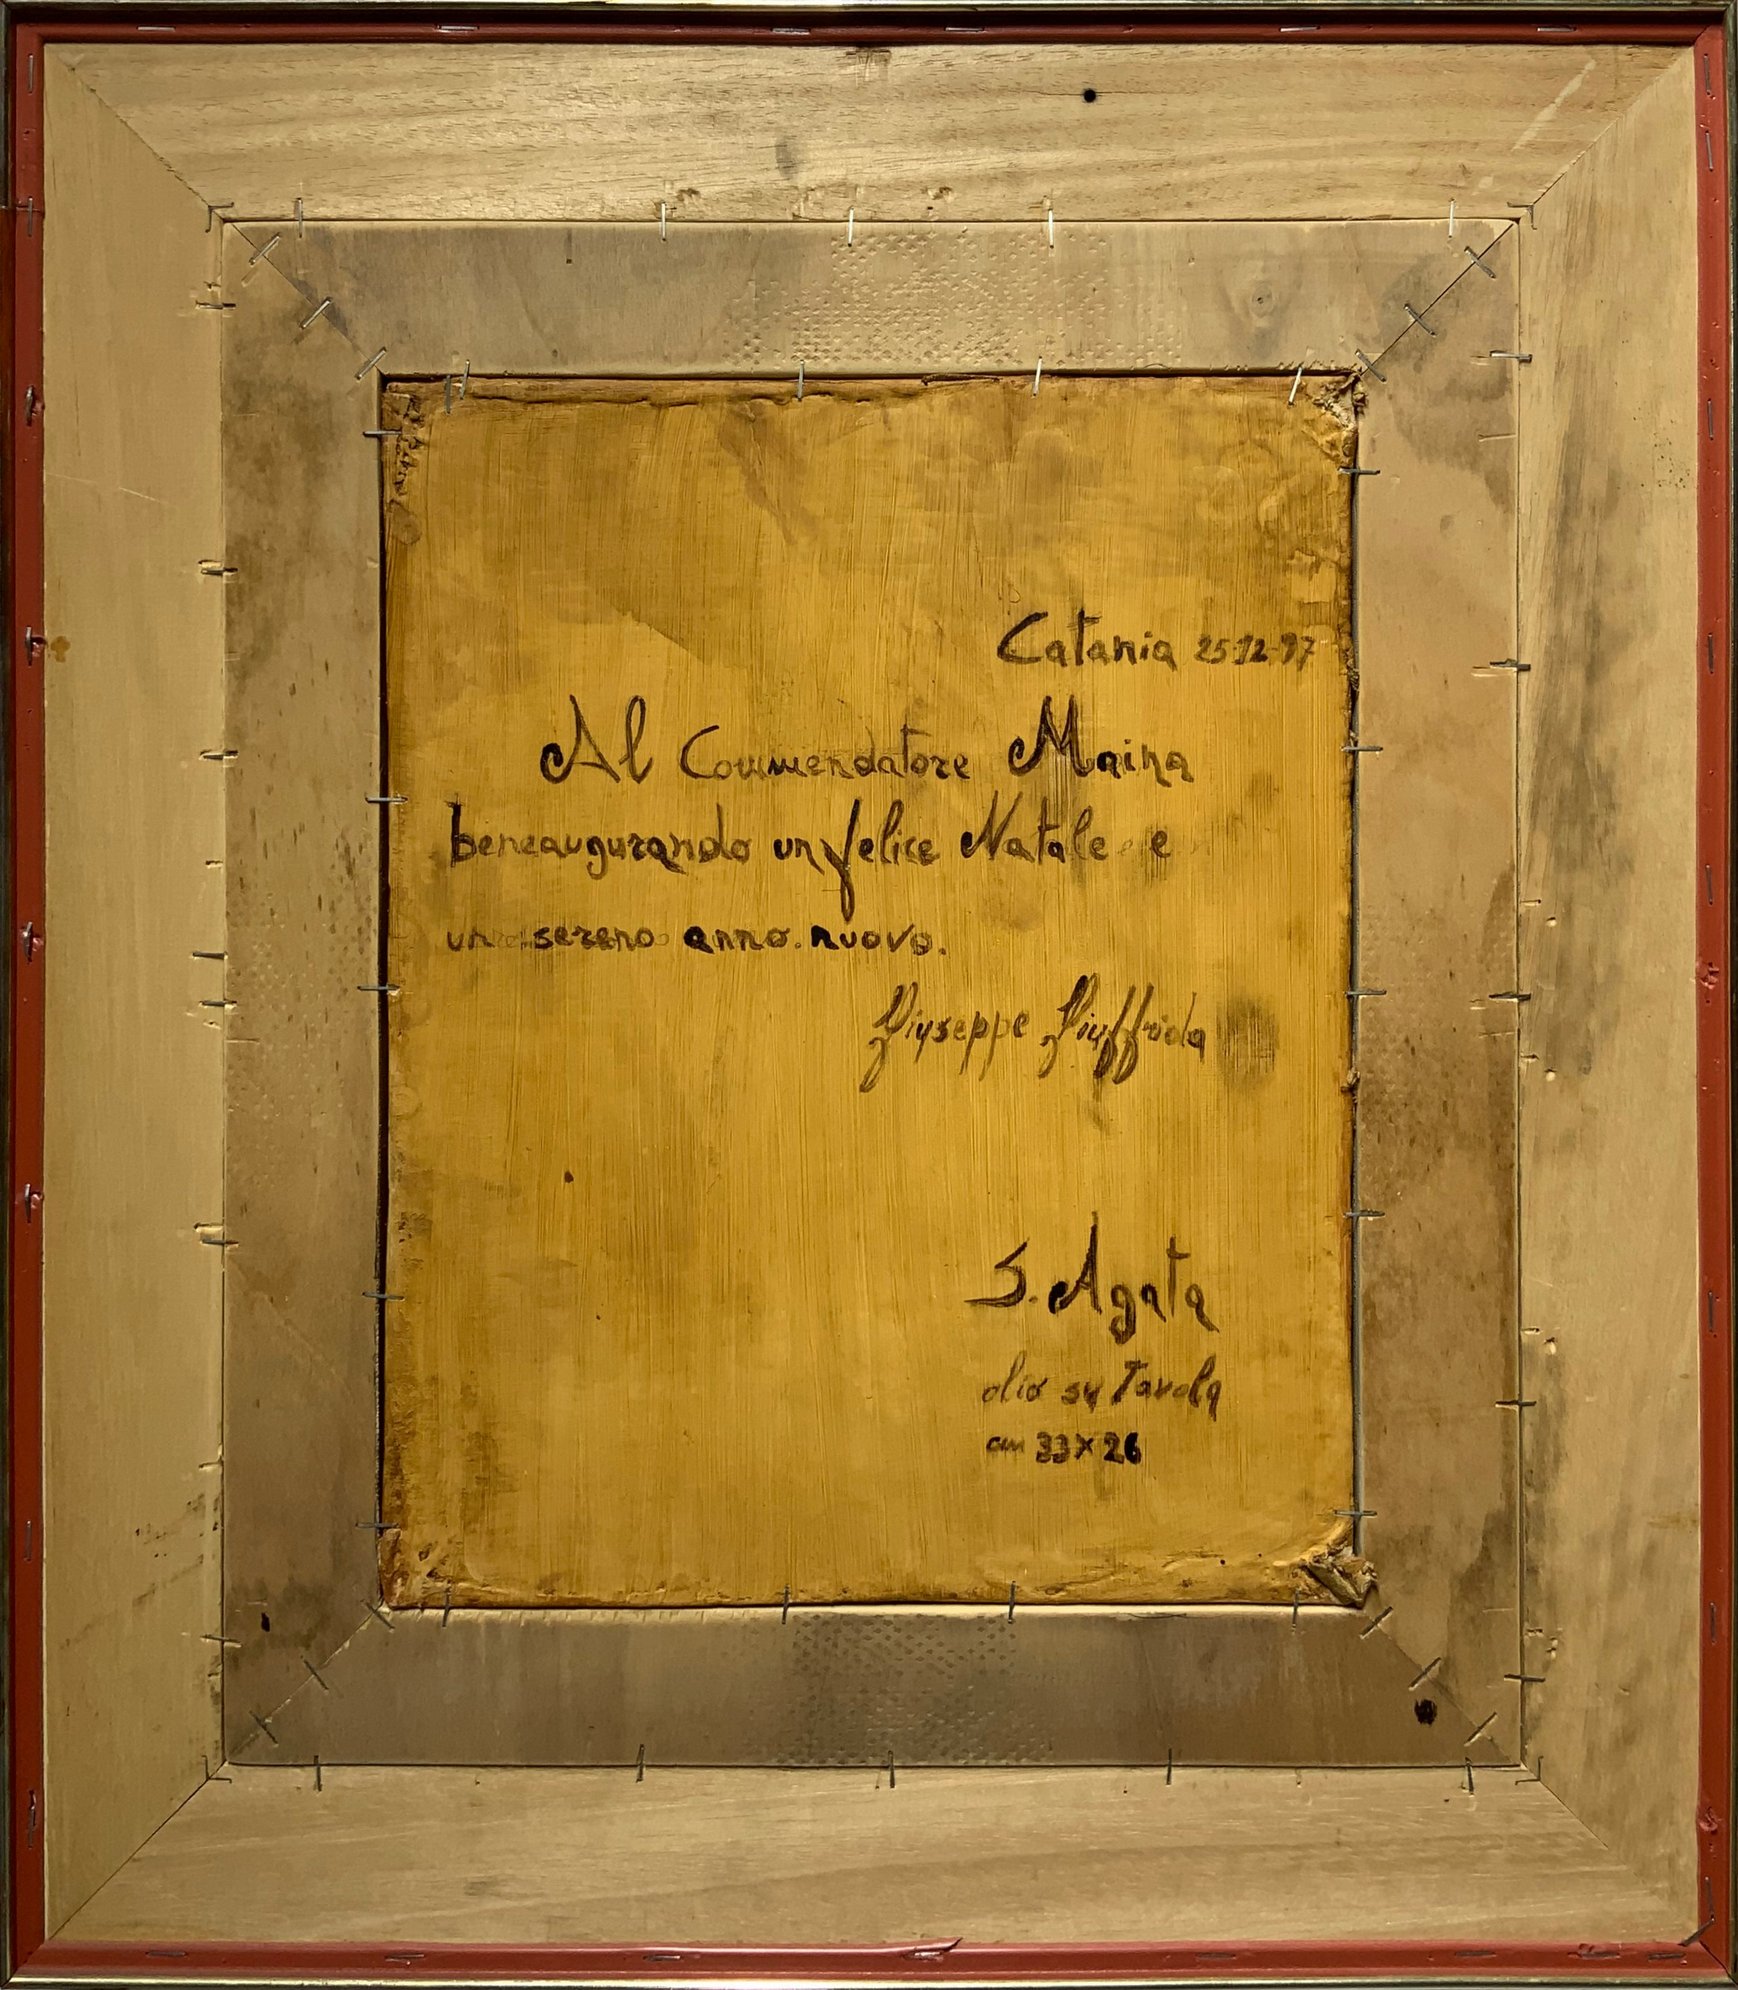 Catania 25-12-97
Al Commendatore Maina
beneaugurando un felice Natale e
un sereno anno nuovo.
Giuseppe Giuffrida
S. Agata
olio su tavola
cm 33x26